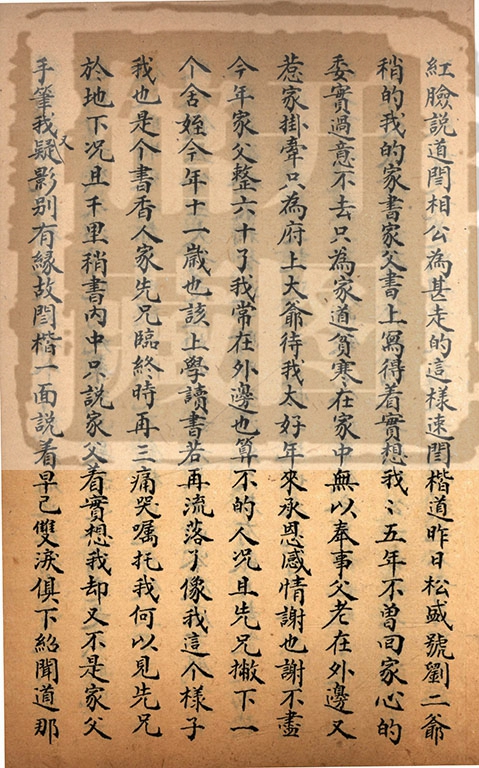 紅臉說道閆相公為甚走的這樣速閆楷道昨日松盛號劉二爺
稍的我的家書家父書上寫得着實想我〻五年不曾回家心的
委實過意不去只為家道貧寒在家中無以奉事父老在外邊又
惹家掛牽只為府上大爺待我太好年來承恩感情謝也謝不盡
今年家父整六十了我常在外邊也算不的人况且先兄撇下一
个舍姪今年十一歲也該上學讀書若再流落了像我這个樣子
我也是个書香人家先兄臨終時再三痛哭囑托我何以見先兄
於地下况且千里稍書內中只說家父着實想我却又不是家父
手筆我又疑影別有緣故閆楷一面說着早已雙淚俱下紹聞道那